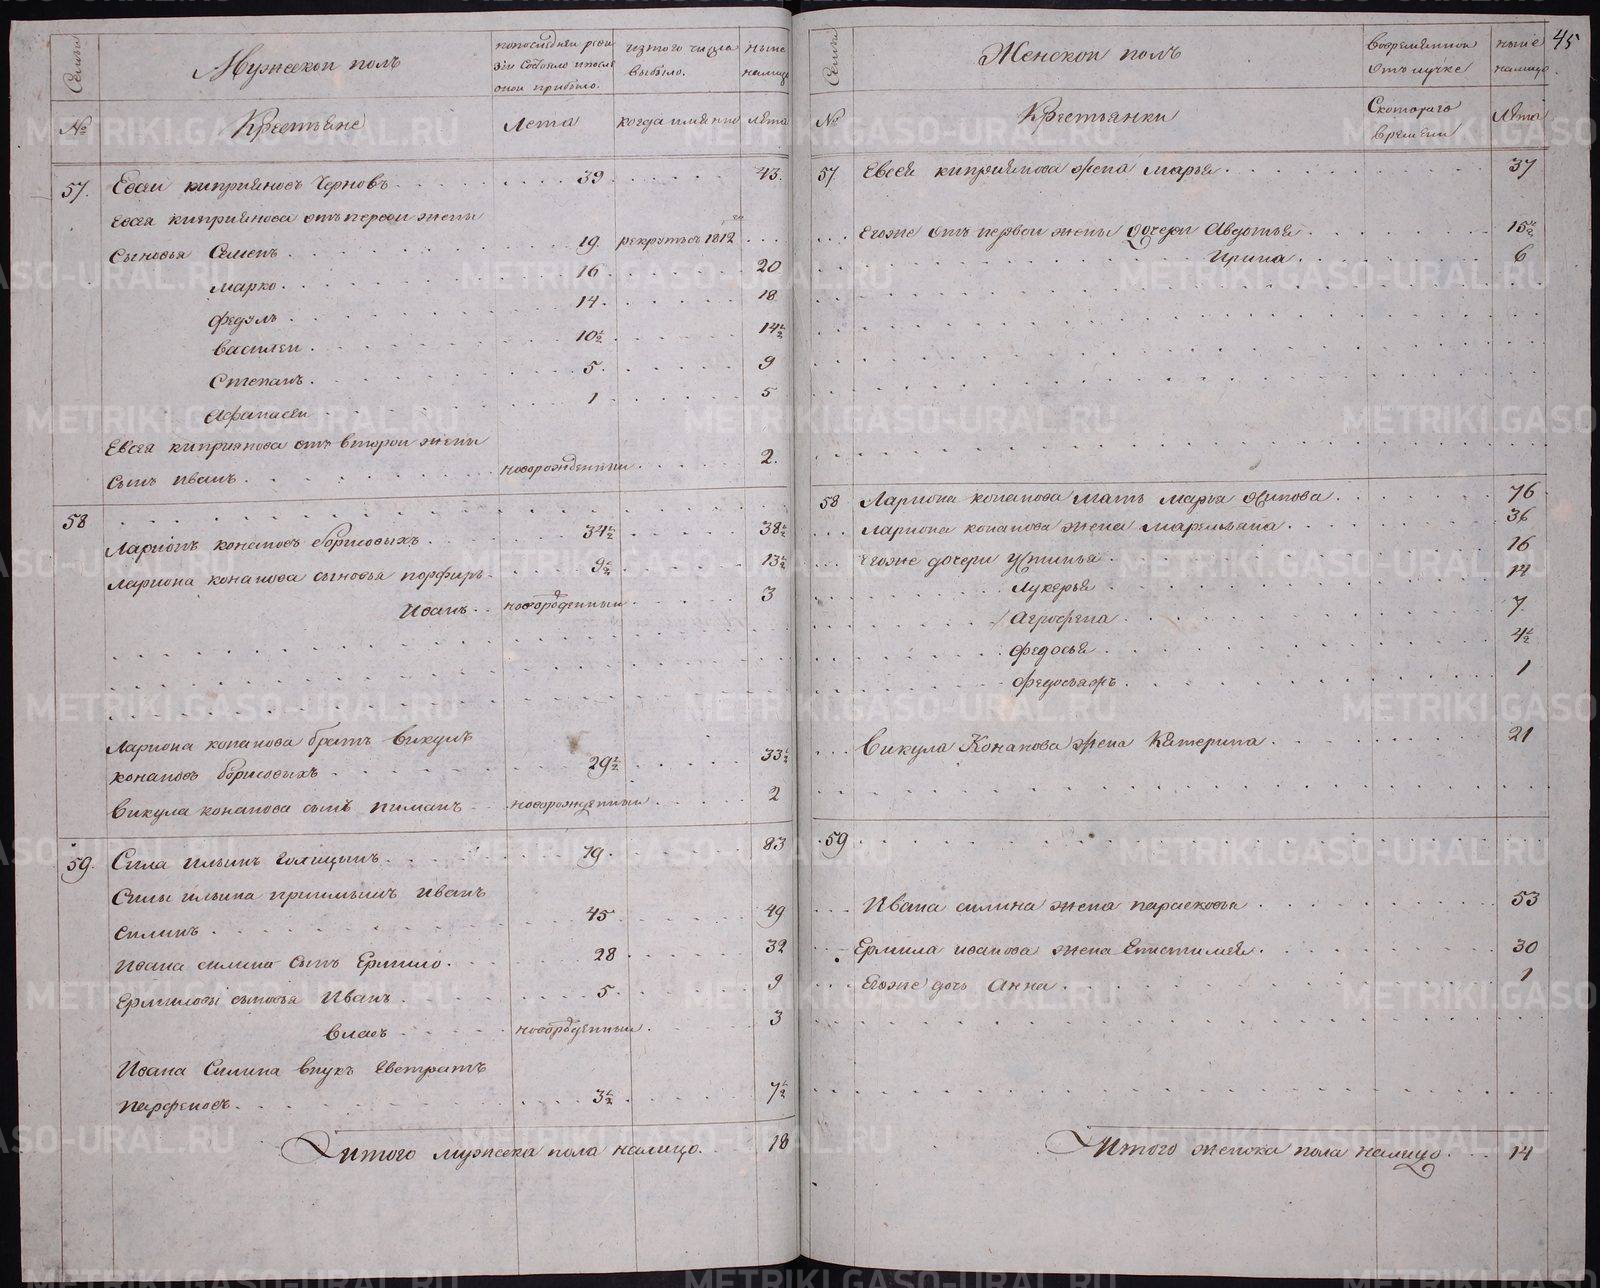 Семьи
Мужеской полъ
по последней реви
зiи состояло и после
оной прибыло.
из того числа
выбыло.
ныне
налицо
№
Крестьяне
Лета
когда имянно
лета
57. Евсей киприяновъ Черновъ 39 43.
Евсея киприянова отъ первой жены
Сыновья Семенъ 19. рекрутъ въ 1812
марко. 16 20
федулъ 14. 18
василей 10½ 14½
Степанъ. 5. 9
Афанасей 1 5
Евсея киприянова отъ второй жены
сынъ иванъ. новорожденный. 2.
58
Ларионъ конановъ борисовыхъ 34½ 38½
Лариона конанова сыновья порфиръ 9½ 13½
Иванъ новорожденный 3
Лариона конанова братъ викулъ
конановъ борисовыхъ 29½ 33½
викула конанова сынъ пиманъ новорожденный 2
59. Сила ильинъ голицынъ 79. 83
Силы ильина приимышъ иванъ
силинъ 45 49
Ивана силина сынъ Ермило. 28 32
Ермиловы сыновья Иванъ 5 9
власъ новорожденный. 3
Ивана Силина внукъ Евстратъ
парфеновъ. 3½ 7½
Итого мужеска пола налицо. 18
45
Семьи
Женской полъ
во временной
отълучке
ныне
налицо.
№
Крестьянки
С котораго
времени
Лета
57 Евсея киприянова жена марья 37
Егоже отъ первой жены дочери Авдотья 15½
Ирина. 6
58 Лариона конанова мать марья осипова. 76
Лариона конанова жена маремьяна. 36
Егоже дочери Устинья 16
Лукерья 14
Агрофена 7
федосья 4½
1
викула Конанова жена Катерина. 21
59.
Ивана силина жена парасковья 53
Ермила иванова жена Епистимея. 30
Егоже дочь Анна 1
Итого женска пола налицо. 14
METRIKI.GASO-URAL.RU